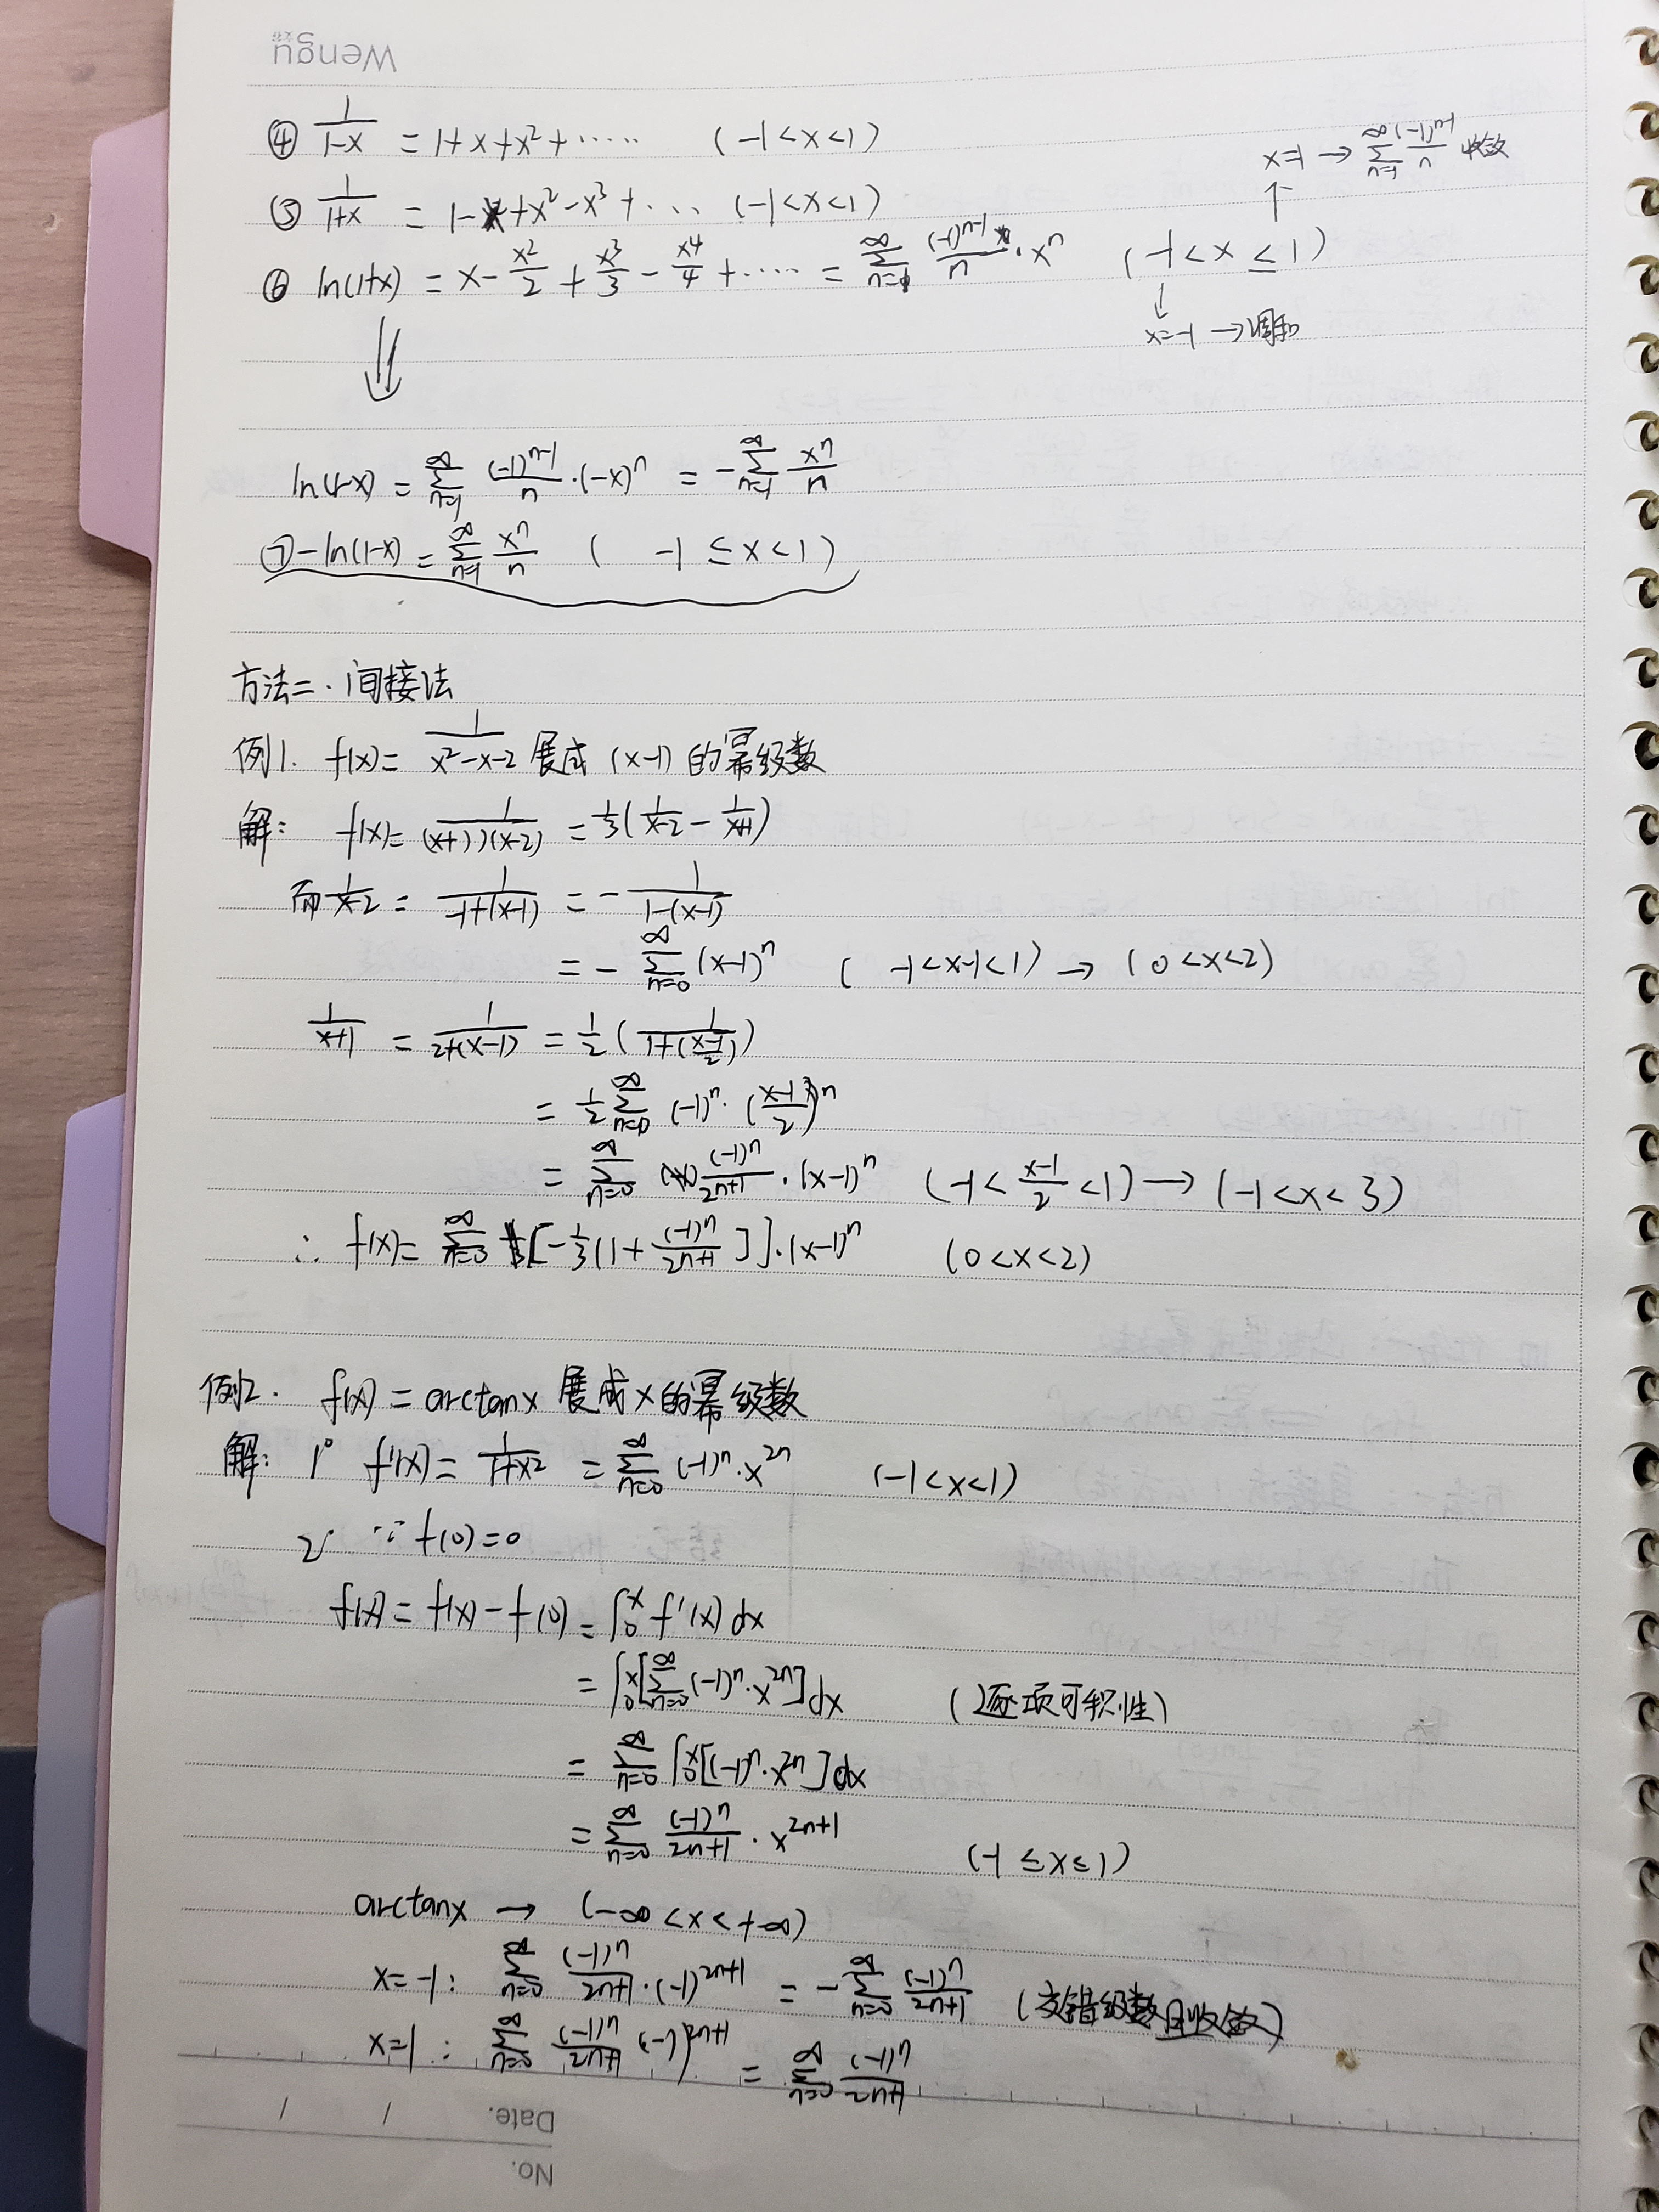 Wengu
④ 1/(1-x) = 1+x+x²+…… (-1<x<1)
x=1 → ∑_{n=1}^{∞} (-1)^{n-1}/n 收敛
↑
⑤ 1/(1+x) = 1-x+x²-x³+… (-1<x<1)
⑥ ln(1+x) = x - x²/2 + x³/3 - x⁴/4 + …… = ∑_{n=1}^{∞} (-1)^{n-1}/n · xⁿ (-1<x≤1)
↓
x=-1 → 调和
⇓
ln(1-x) = ∑_{n=1}^{∞} (-1)^{n-1}/n · (-x)ⁿ = -∑_{n=1}^{∞} xⁿ/n
⑦ -ln(1-x) = ∑_{n=1}^{∞} xⁿ/n ( -1≤x<1)
方法二. 间接法
例1. f(x) = 1/(x²-x-2) 展成 (x-1) 的幂级数
解: f(x) = 1/((x+1)(x-2)) = 1/3(1/(x-2) - 1/(x+1))
而 1/(x-2) = 1/(-1+(x-1)) = -1/(1-(x-1))
= -∑_{n=0}^{∞} (x-1)ⁿ ( -1<x-1<1) → (0<x<2)
1/(x+1) = 1/(2+(x-1)) = 1/2 (1/(1+(x-1)/2))
= 1/2 ∑_{n=0}^{∞} (-1)ⁿ · ((x-1)/2)ⁿ
= ∑_{n=0}^{∞} (-1)ⁿ/2^{n+1} · (x-1)ⁿ (-1< (x-1)/2 <1) → (-1<x<3)
∴ f(x) = ∑_{n=0}^{∞} [-1/3(1+ (-1)ⁿ/2^{n+1} ]] · (x-1)ⁿ (0<x<2)
例2. f(x) = arctanx 展成x的幂级数
解: 1° f'(x) = 1/(1+x²) = ∑_{n=0}^{∞} (-1)ⁿ · x²ⁿ (-1<x<1)
2° ∵ f(0)=0
f(x) = f(x) - f(0) = ∫₀ˣ f'(x) dx
= ∫₀ˣ [∑_{n=0}^{∞} (-1)ⁿ · x²ⁿ] dx (逐项可积性)
= ∑_{n=0}^{∞} ∫₀ˣ [(-1)ⁿ · x²ⁿ] dx
= ∑_{n=0}^{∞} (-1)ⁿ/(2n+1) · x^{2n+1} (-1≤x≤1)
arctanx → (-∞<x<+∞)
x=-1: ∑_{n=0}^{∞} (-1)ⁿ/(2n+1) · (-1)^{2n+1} = -∑_{n=0}^{∞} (-1)ⁿ/(2n+1) (交错级数且收敛)
x=1: ∑_{n=0}^{∞} (-1)ⁿ/(2n+1) (-1)^{2n+1} = ∑_{n=0}^{∞} (-1)ⁿ/(2n+1)
Date. / /
No.